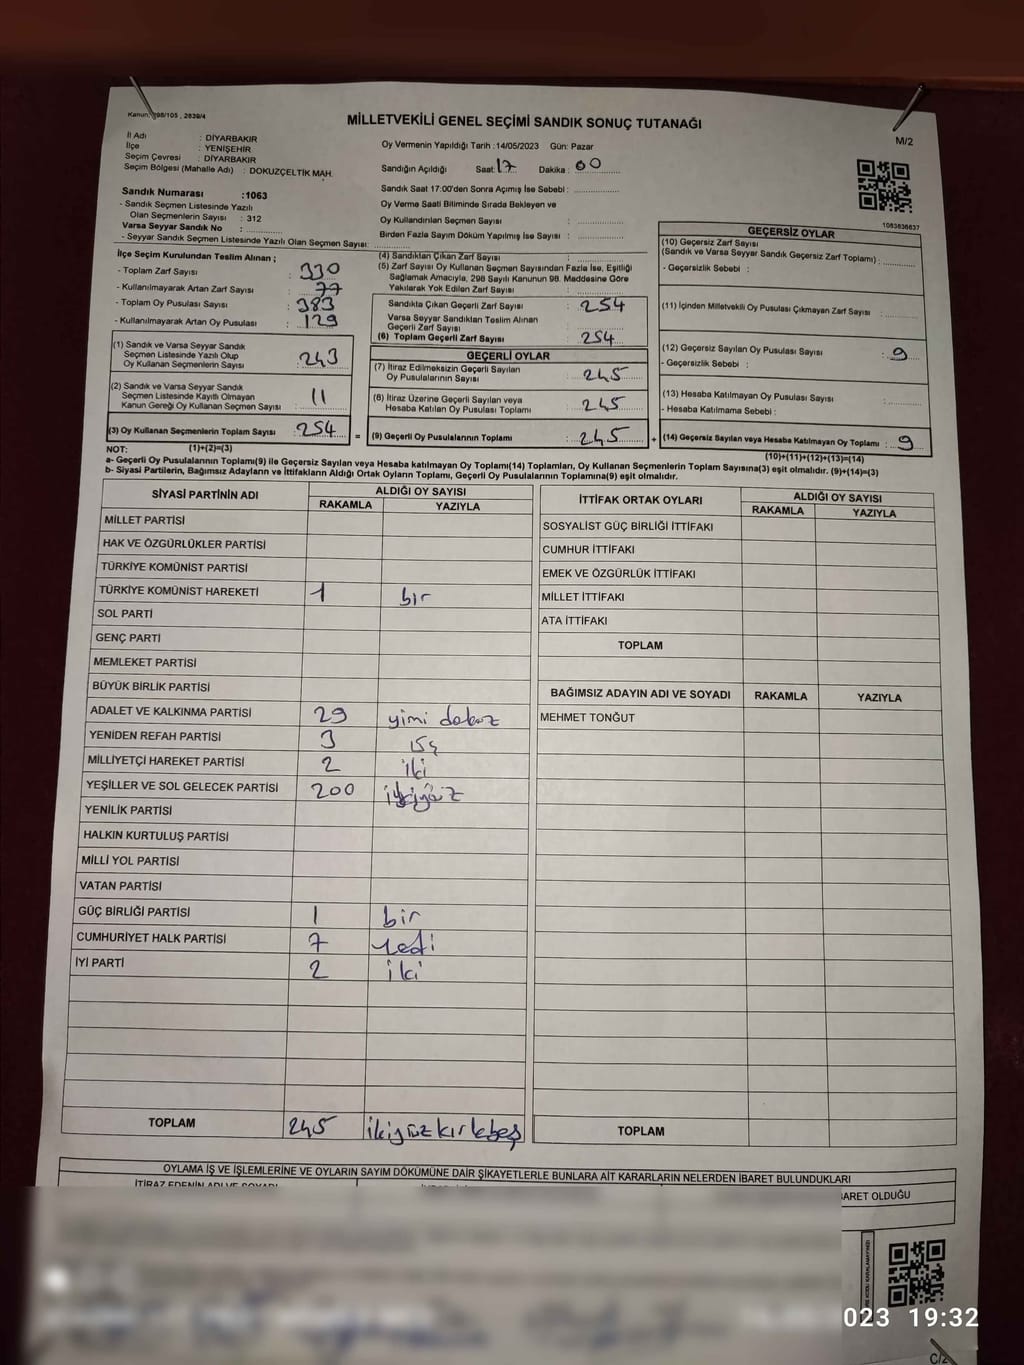 Kanun: 298/105, 2839/4
MİLLETVEKİLİ GENEL SEÇİMİ SANDIK SONUÇ TUTANAĞI
M/2
İl Adı : DİYARBAKIR
İlçe : YENİŞEHİR
Seçim Çevresi : DİYARBAKIR
Seçim Bölgesi (Mahalle Adı) : DOKUZÇELTİK MAH.
Sandık Numarası :1063
- Sandık Seçmen Listesinde Yazılı
Olan Seçmenlerin Sayısı : 312
Varsa Seyyar Sandık No :
- Seyyar Sandık Seçmen Listesinde Yazılı Olan Seçmen Sayısı:
Oy Vermenin Yapıldığı Tarih :14/05/2023 Gün: Pazar
Sandığın Açıldığı Saat: 17 Dakika : 00
Sandık Saat 17:00'den Sonra Açımış İse Sebebi :
Oy Verme Saati Bitiminde Sırada Bekleyen ve
Oy Kullandırılan Seçmen Sayısı :
Birden Fazla Sayım Döküm Yapılmış İse Sayısı :
1063636637
İlçe Seçim Kurulundan Teslim Alınan ;
- Toplam Zarf Sayısı : 330
- Kullanılmayarak Artan Zarf Sayısı : 77
- Toplam Oy Pusulası Sayısı : 383
- Kullanılmayarak Artan Oy Pusulası : 129
(1) Sandık ve Varsa Seyyar Sandık
Seçmen Listesinde Yazılı Olup
Oy Kullanan Seçmenlerin Sayısı : 243
(2) Sandık ve Varsa Seyyar Sandık
Seçmen Listesinde Kayıtlı Olmayan
Kanun Gereği Oy Kullanan Seçmen Sayısı : 11
(3) Oy Kullanan Seçmenlerin Toplam Sayısı : 254
(1)+(2)=(3)
(4) Sandıktan Çıkan Zarf Sayısı :
(5) Zarf Sayısı Oy Kullanan Seçmen Sayısından Fazla İse, Eşitliği
Sağlamak Amacıyla, 298 Sayılı Kanunun 98. Maddesine Göre
Yakılarak Yok Edilen Zarf Sayısı :
Sandıkta Çıkan Geçerli Zarf Sayısı : 254
Varsa Seyyar Sandıktan Teslim Alınan
Geçerli Zarf Sayısı :
(6) Toplam Geçerli Zarf Sayısı : 254
GEÇERLİ OYLAR
(7) İtiraz Edilmeksizin Geçerli Sayılan
Oy Pusulalarının Sayısı : 245
(8) İtiraz Üzerine Geçerli Sayılan veya
Hesaba Katılan Oy Pusulası Toplamı : 245
= (9) Geçerli Oy Pusulalarının Toplamı : 245 +
GEÇERSİZ OYLAR
(10) Geçersiz Zarf Sayısı
(Sandık ve Varsa Seyyar Sandık Geçersiz Zarf Toplamı) :
- Geçersizlik Sebebi :
(11) İçinden Milletvekili Oy Pusulası Çıkmayan Zarf Sayısı :
(12) Geçersiz Sayılan Oy Pusulası Sayısı : 9
- Geçersizlik Sebebi :
(13) Hesaba Katılmayan Oy Pusulası Sayısı :
- Hesaba Katılmama Sebebi :
(14) Geçersiz Sayılan veya Hesaba Katılmayan Oy Toplamı : 9
(10)+(11)+(12)+(13)=(14)
NOT:
a- Geçerli Oy Pusulalarının Toplamı(9) ile Geçersiz Sayılan veya Hesaba katılmayan Oy Toplamı(14) Toplamları, Oy Kullanan Seçmenlerin Toplam Sayısına(3) eşit olmalıdır. (9)+(14)=(3)
b- Siyasi Partilerin, Bağımsız Adayların ve İttifakların Aldığı Ortak Oyların Toplamı, Geçerli Oy Pusulalarının Toplamına(9) eşit olmalıdır.
SİYASİ PARTİNİN ADI ALDIĞI OY SAYISI
RAKAMLA YAZIYLA
MİLLET PARTİSİ
HAK VE ÖZGÜRLÜKLER PARTİSİ
TÜRKİYE KOMÜNİST PARTİSİ
TÜRKİYE KOMÜNİST HAREKETİ 1 bir
SOL PARTİ
GENÇ PARTİ
MEMLEKET PARTİSİ
BÜYÜK BİRLİK PARTİSİ
ADALET VE KALKINMA PARTİSİ 29 yimi dokuz
YENİDEN REFAH PARTİSİ 3
MİLLİYETÇİ HAREKET PARTİSİ 2 iki
YEŞİLLER VE SOL GELECEK PARTİSİ 200 ikiyüz
YENİLİK PARTİSİ
HALKIN KURTULUŞ PARTİSİ
MİLLİ YOL PARTİSİ
VATAN PARTİSİ
GÜÇ BİRLİĞİ PARTİSİ 1 bir
CUMHURİYET HALK PARTİSİ 7 yedi
İYİ PARTİ 2 iki
TOPLAM 245 ikiyüz kırkbeş
İTTİFAK ORTAK OYLARI ALDIĞI OY SAYISI
RAKAMLA YAZIYLA
SOSYALİST GÜÇ BİRLİĞİ İTTİFAKI
CUMHUR İTTİFAKI
EMEK VE ÖZGÜRLÜK İTTİFAKI
MİLLET İTTİFAKI
ATA İTTİFAKI
TOPLAM
BAĞIMSIZ ADAYIN ADI VE SOYADI RAKAMLA YAZIYLA
MEHMET TONĞUT
TOPLAM
OYLAMA İŞ VE İŞLEMLERİNE VE OYLARIN SAYIM DÖKÜMÜNE DAİR ŞİKAYETLERLE BUNLARA AİT KARARLARIN NELERDEN İBARET BULUNDUKLARI
İTİRAZ EDENİN ADI VE SOYADI
BARET OLDUĞU
023 19:32
C/2